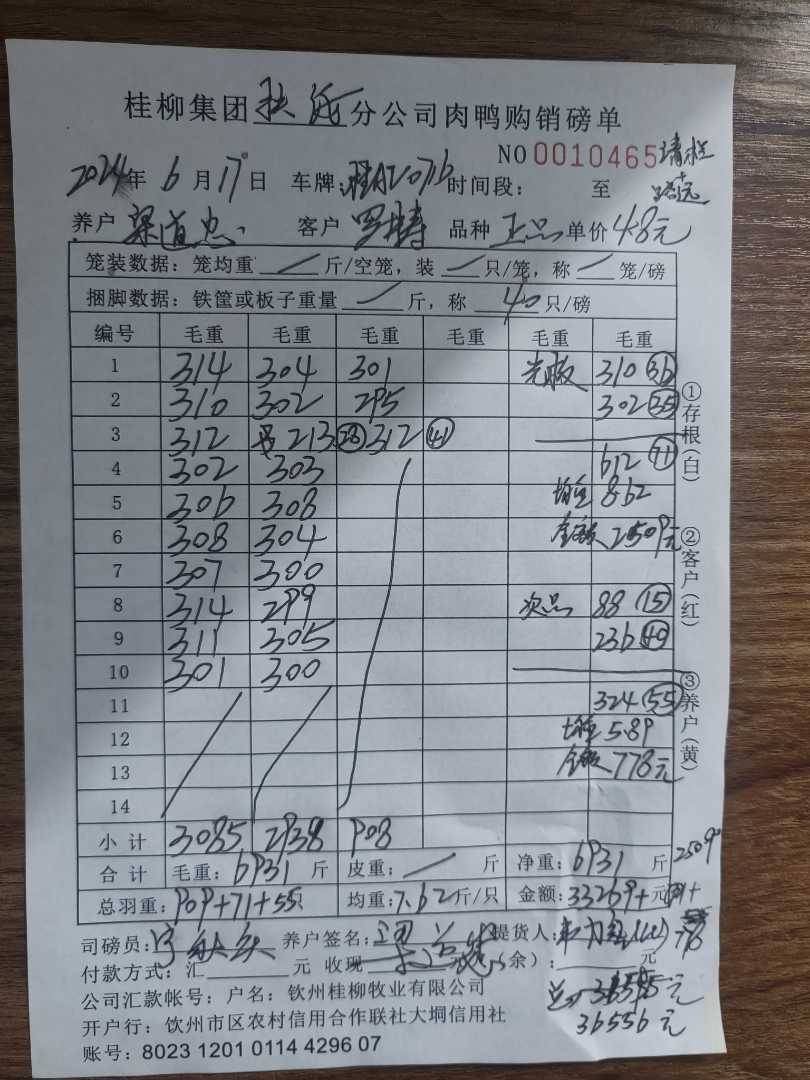 桂柳集团 分公司肉鸭购销磅单
NO 0010465 请栏
2024年 6 月 17 日 车牌:桂A2076 时间段: 至 路远
养户 梁道忠 客户 罗 品种 正品 单价 4.8元
笼装数据: 笼均重 / 斤/空笼, 装 / 只/笼, 称 / 笼/磅
捆脚数据: 铁筐或板子重量 / 斤, 称 40 只/磅
编号 毛重 毛重 毛重 毛重 毛重 毛重
1 314 304 301 光 310 36
2 310 302 295 302 35
3 312 另 213 28 312 41
4 302 303 612 71
5 306 308 均重 8.62
6 308 304 金额 2509元
7 307 300
8 314 299 次品 88 15
9 311 305 236 40
10 301 300
11 324 55
12 均重 5.89
13 金额 778元
14
小计 3085 2938 908
合计 毛重: 6931 斤 皮重: / 斤 净重: 6931 斤 2509
总羽重: 909+71+55只 均重: 7.62 斤/只 金额: 33269+元
司磅员: 养户签名: 梁道忠 提货人: 778
付款方式: 汇 元 收现 (余): 元
公司汇款帐号: 户名: 钦州桂柳牧业有限公司
36556 元
开户行: 钦州市区农村信用合作联社大垌信用社
账号: 8023 1201 0114 4296 07
①存根(白)
②客户(红)
③养户(黄)